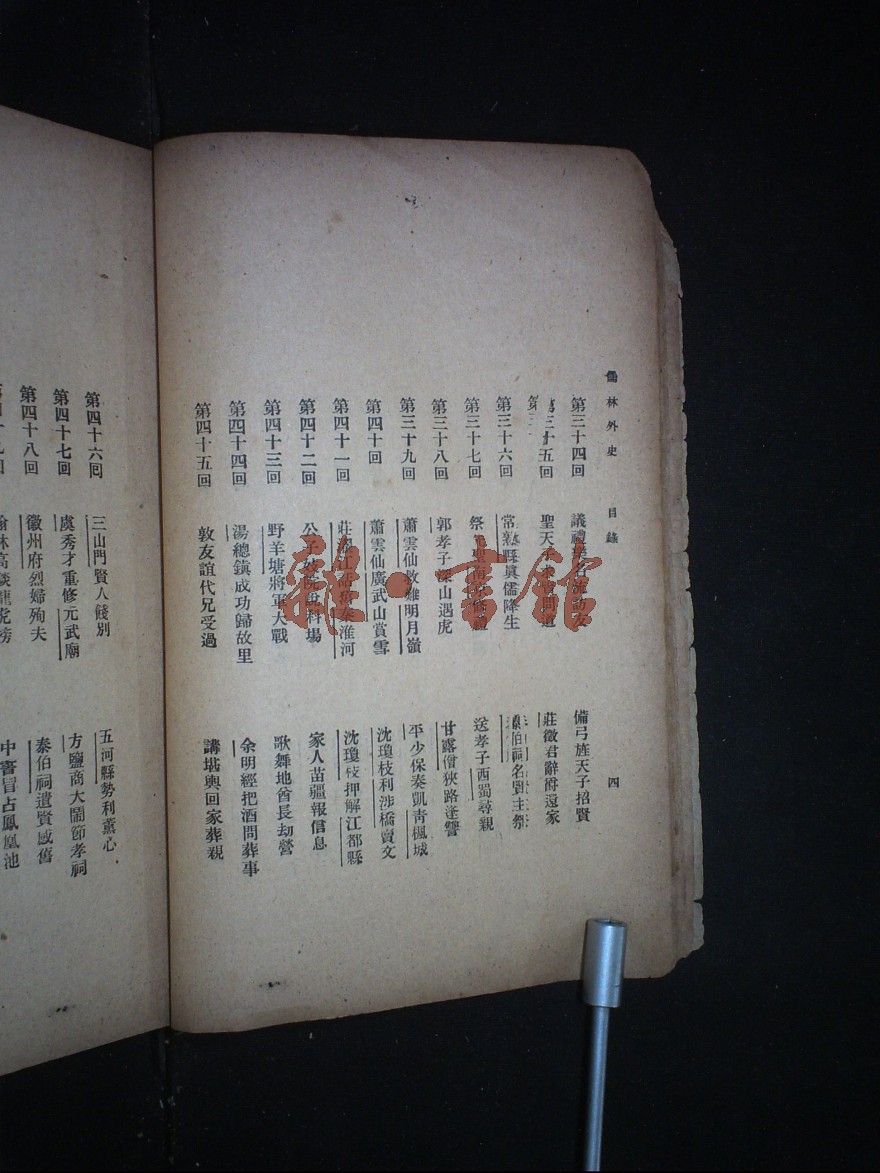 儒林外史 目錄 四
第三十四回 議禮樂名流訪友 備弓旌天子招賢
第三十五回 聖天子求賢問道 莊徵君辭爵還家
第三十六回 常熟縣眞儒降生 泰伯祠名賢主祭
第三十七回 祭先聖南京修禮 送孝子西蜀尋親
第三十八回 郭孝子深山遇虎 甘露僧狹路逢讐
第三十九回 蕭雲仙救難明月嶺 平少保奏凱靑楓城
第四十回 蕭雲仙廣武山賞雪 沈瓊枝利涉橋賣文
第四十一回 莊濯江話舊秦淮河 沈瓊枝押解江都縣
第四十二回 公子妓院說科場 家人苗疆報信息
第四十三回 野羊塘將軍大戰 歌舞地酋長劫營
第四十四回 湯總鎭成功歸故里 余明經把酒問葬事
第四十五回 敦友誼代兄受過 講堪輿回家葬親
第四十六回 三山門賢人餞別 五河縣勢利薰心
第四十七回 虞秀才重修元武廟 方鹽商大鬧節孝祠
第四十八回 徽州府烈婦殉夫 泰伯祠遺賢感舊
林高談龍虎榜 中書冒占鳳凰池
雜·書館